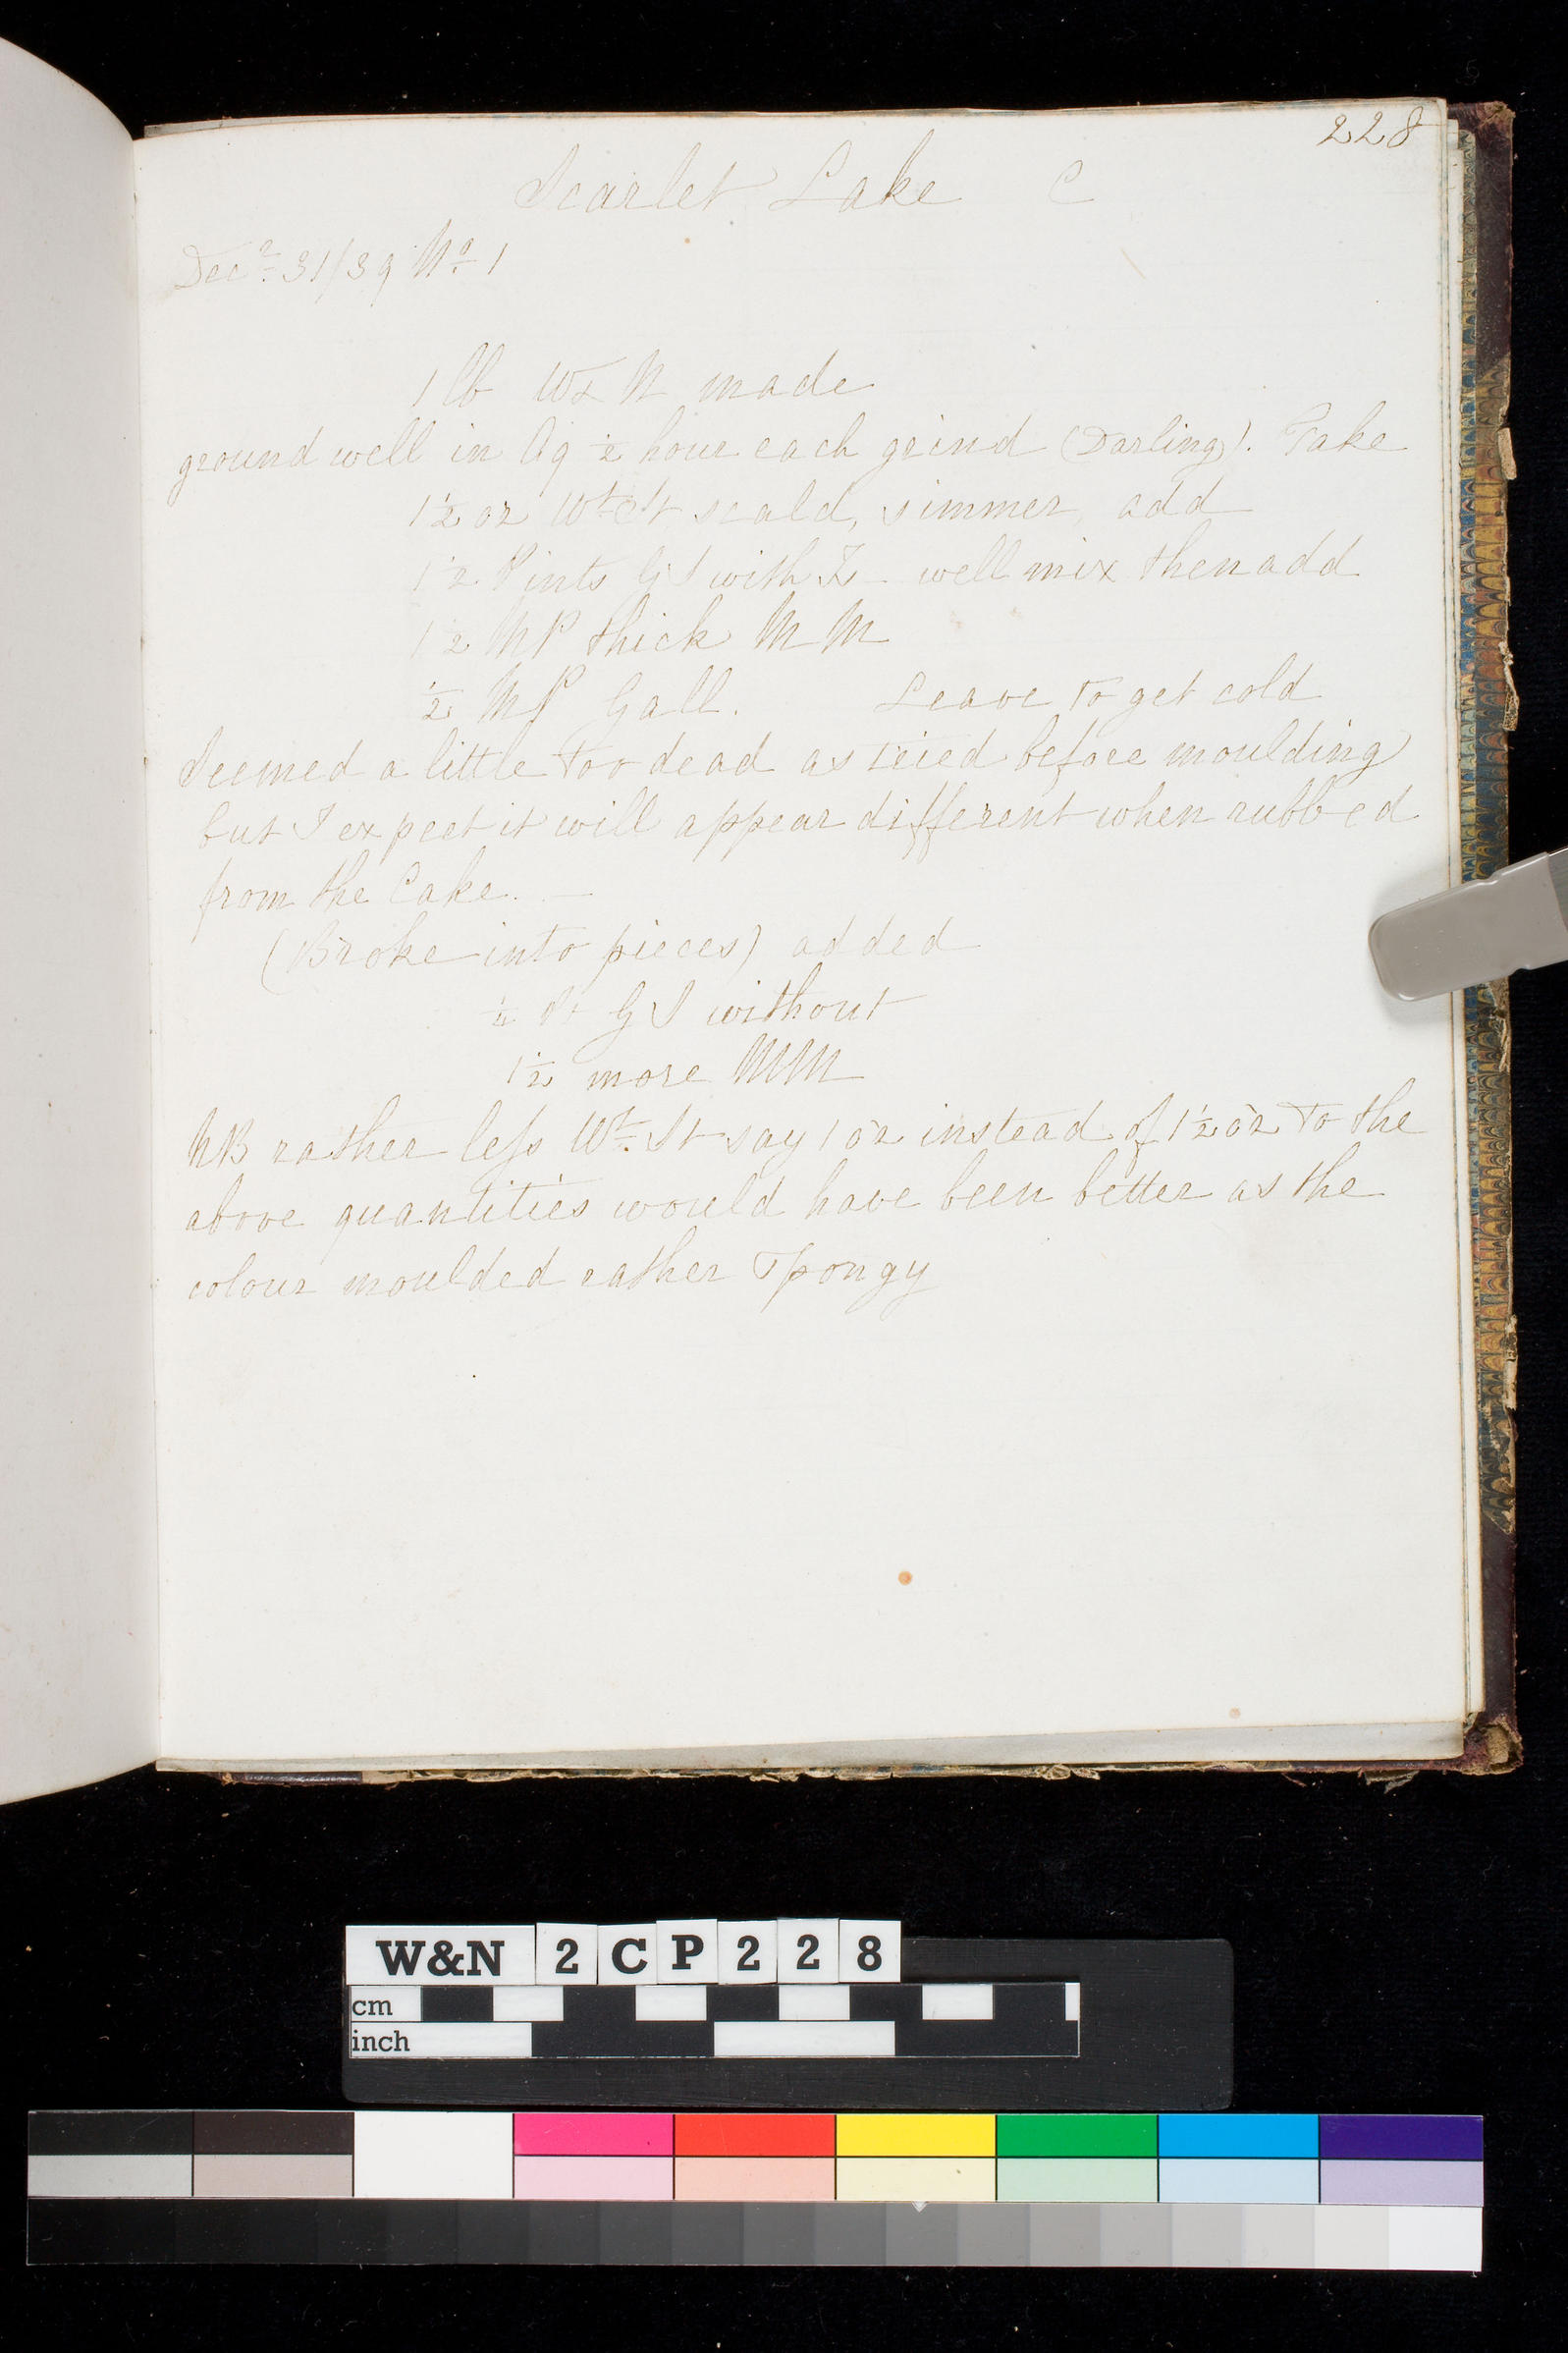 228
Scarlet Lake C
Decr 31/39 No 1
1 lb W & N made
ground well in Aq ½ hour each grind (Darling). Take
1½ oz Wt St scald, simmer, add
1½ Pints GS with Z - well mix then add
1½ MP thick MM
½ MP Gall. Leave to get cold
Seemed a little too dead as tried before moulding
but I expect it will appear different when rubbed
from the Cake. —
(Broke into pieces) added
¼ Pt GS without
1½ more MM
NB rather less Wt St say 1 oz instead of 1½ oz to the
above quantities would have been better as the
colour moulded rather spongy
W&N 2CP228
cm
inch